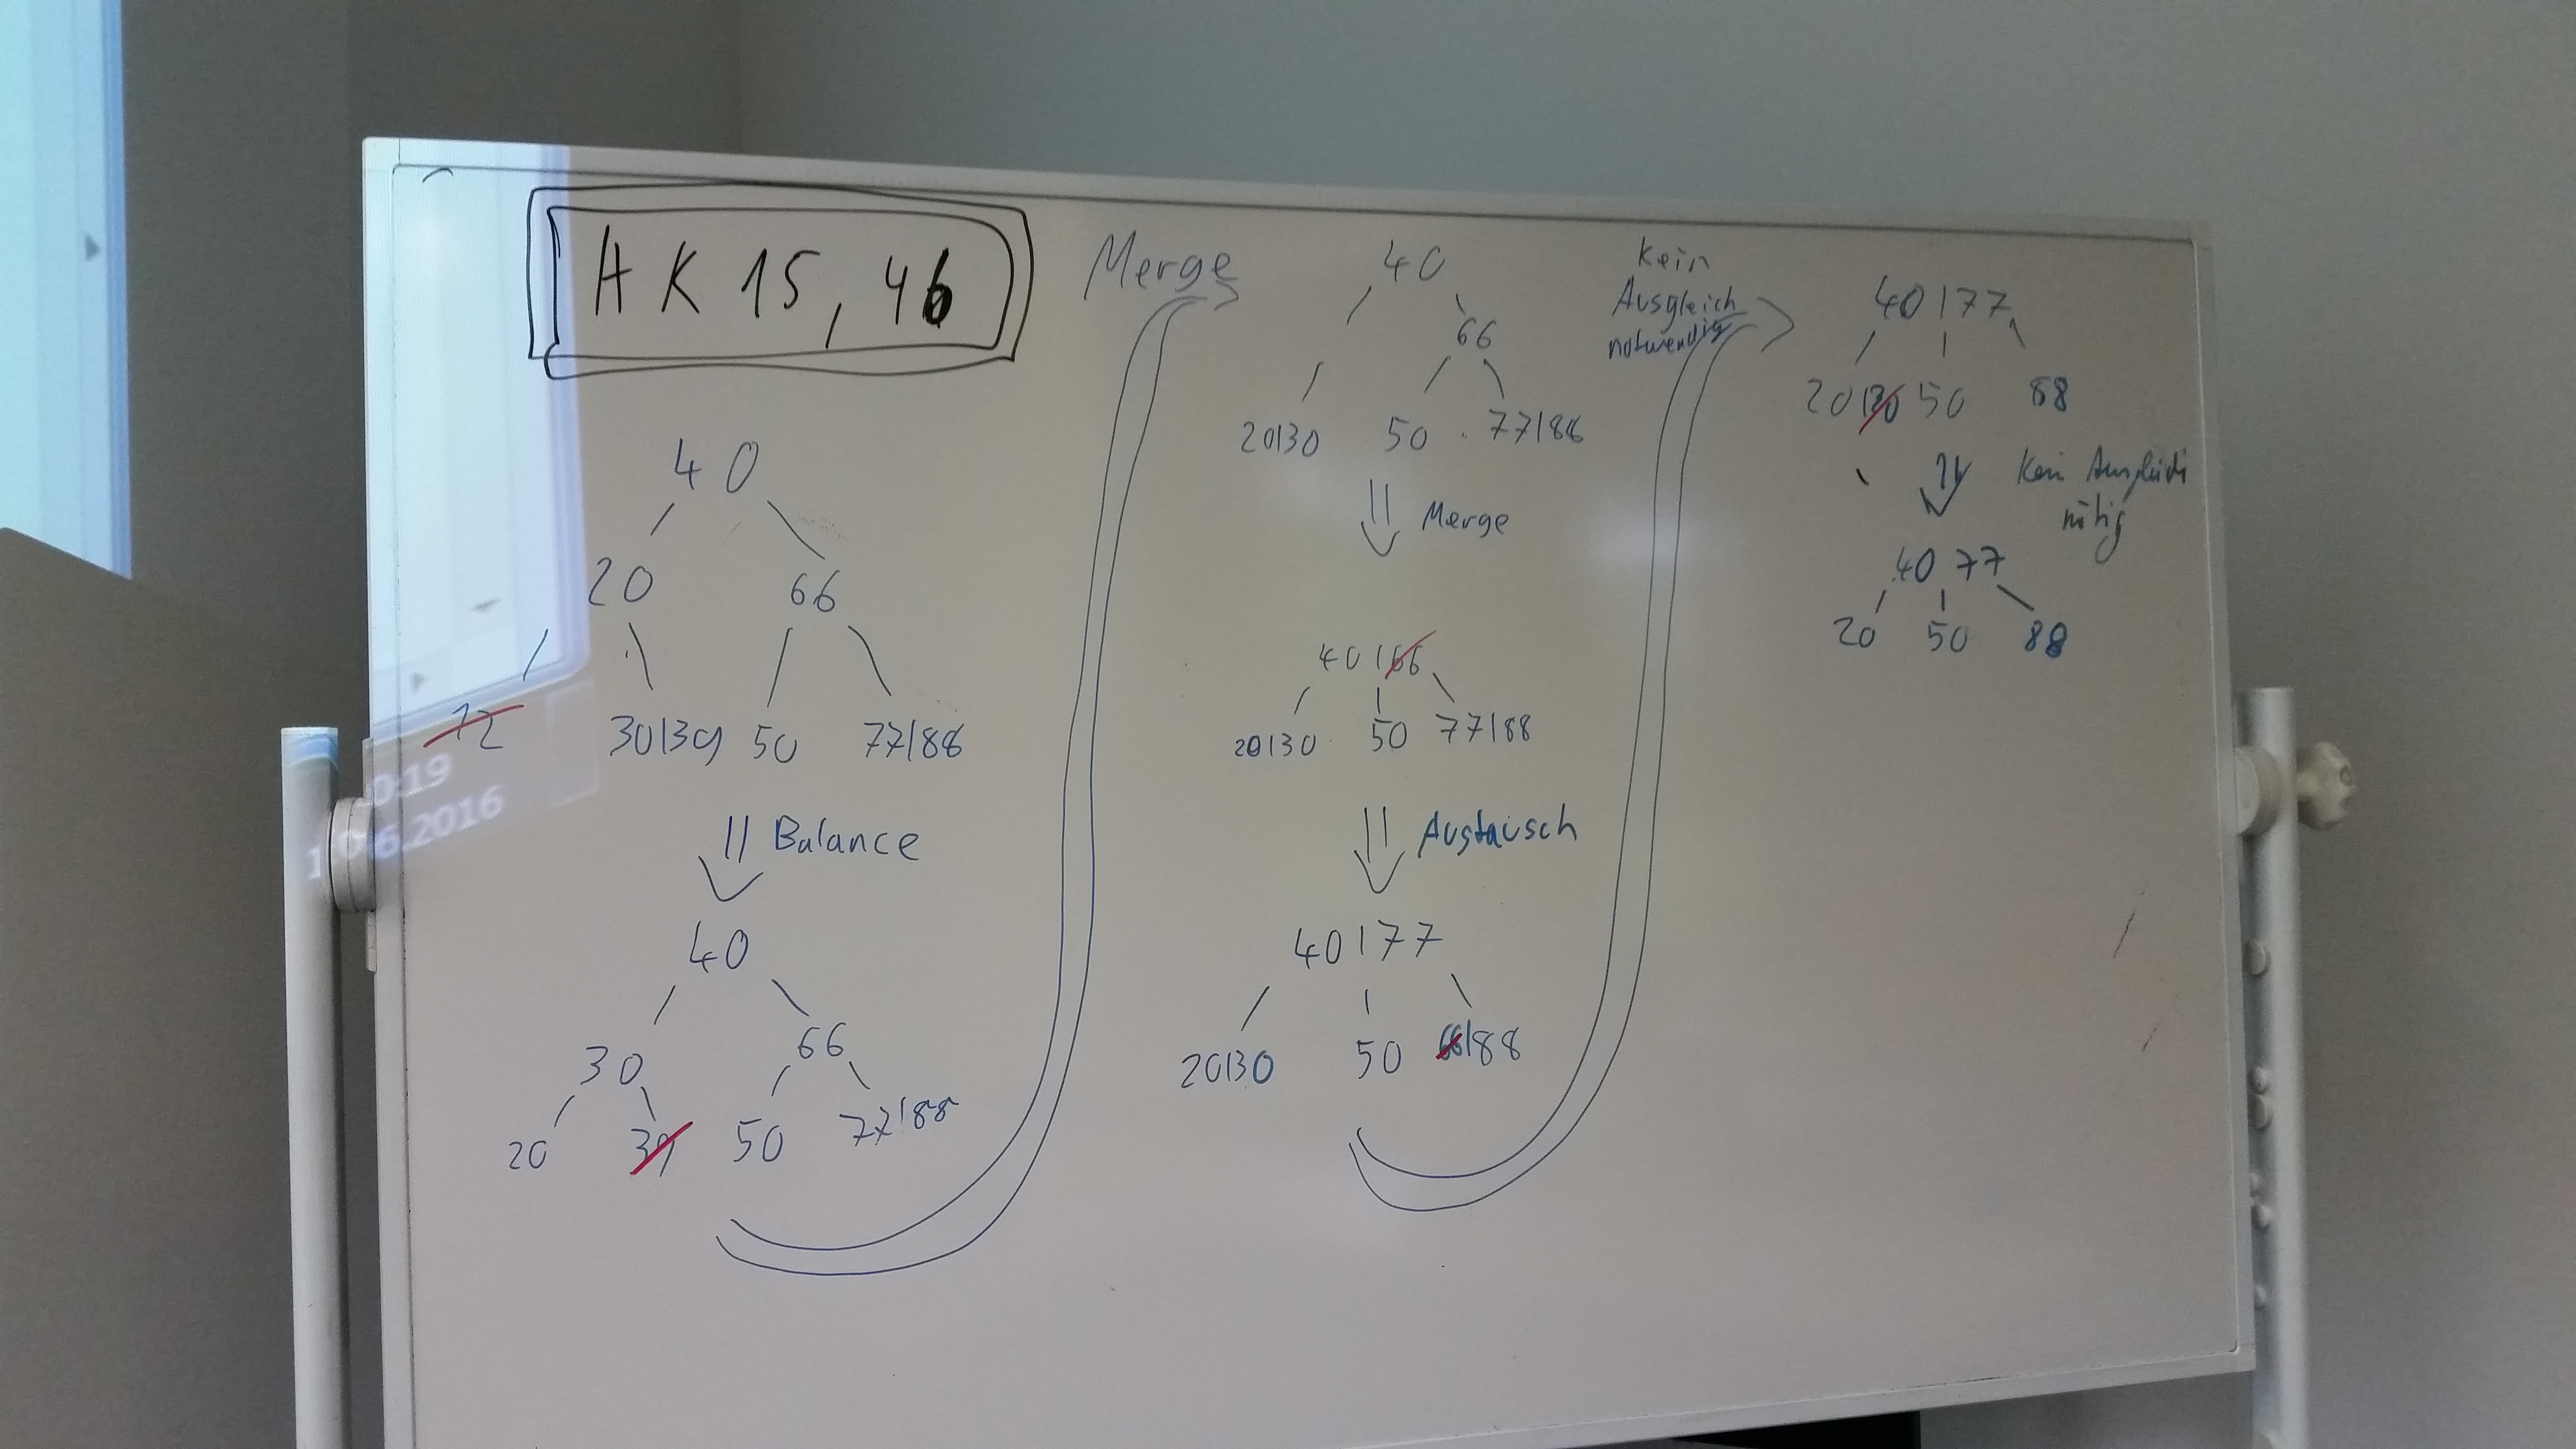 AK 15, 46
40
20 66
12 30|39 50 77|88
Balance
40
30 66
20 39 50 77|88
Merge
40
66
20|30 50 77|88
Merge
40|66
20|30 50 77|88
Austausch
40|77
20|30 50 66|88
kein
Ausgleich
notwendig
40|77
20|30 50 88
Kein Ausgleich
nötig
40 77
20 50 88
0:19
6.2016